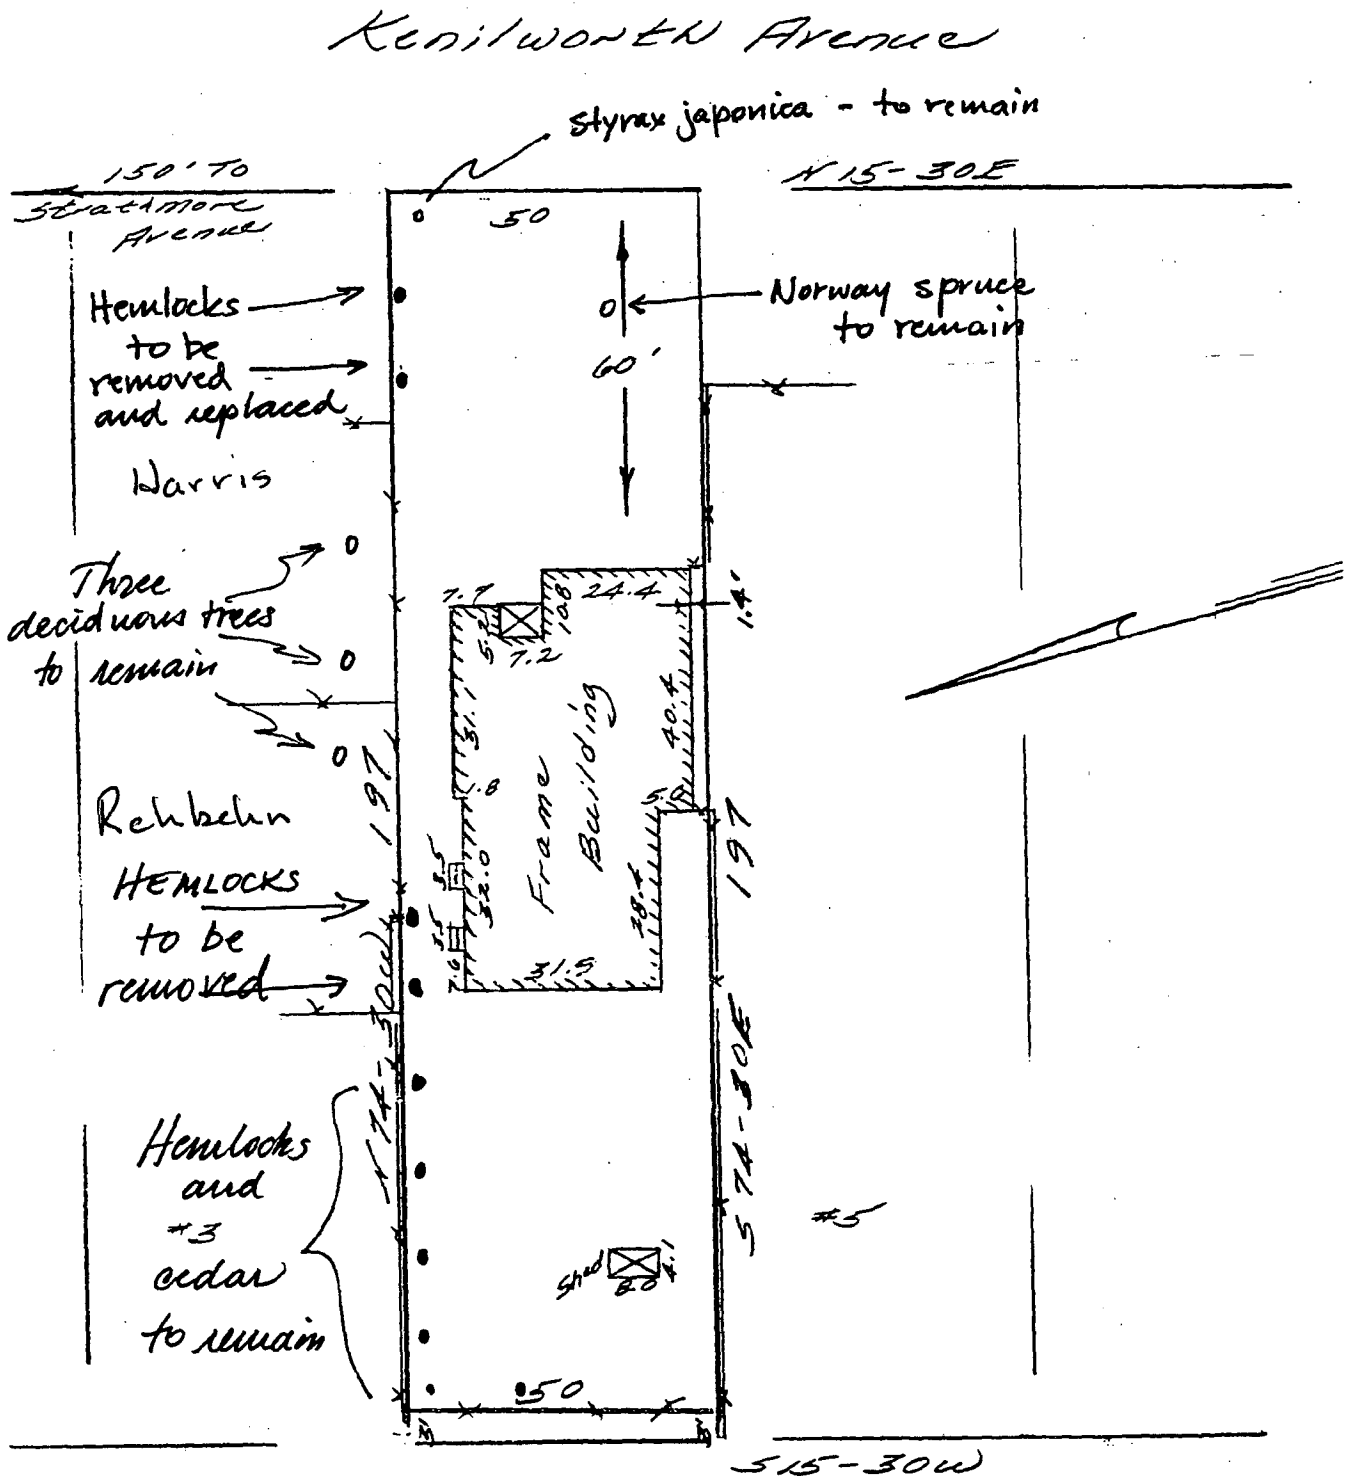 Kenilworth Avenue
styrax japonica - to remain
150' To
Strathmore
Avenue
N 15-30E
50
Hemlocks
to be
removed
and replaced
Norway spruce
to remain
60'
Harris
Three
deciduous trees
to remain
7.7
5.2
7.2
10.8
24.4
1.4'
31.1
.8
40.4
5.0
Frame
Building
197
197
Rehbehn
HEMLOCKS
to be
removed
3.5
3.5
32.0
28.4
7.6
31.5
N 74-30W
S 74-30E
Hemlocks
and
#3
cedar
to remain
#5
Shed
8.0
4.1
50
3'
3'
S15-30W